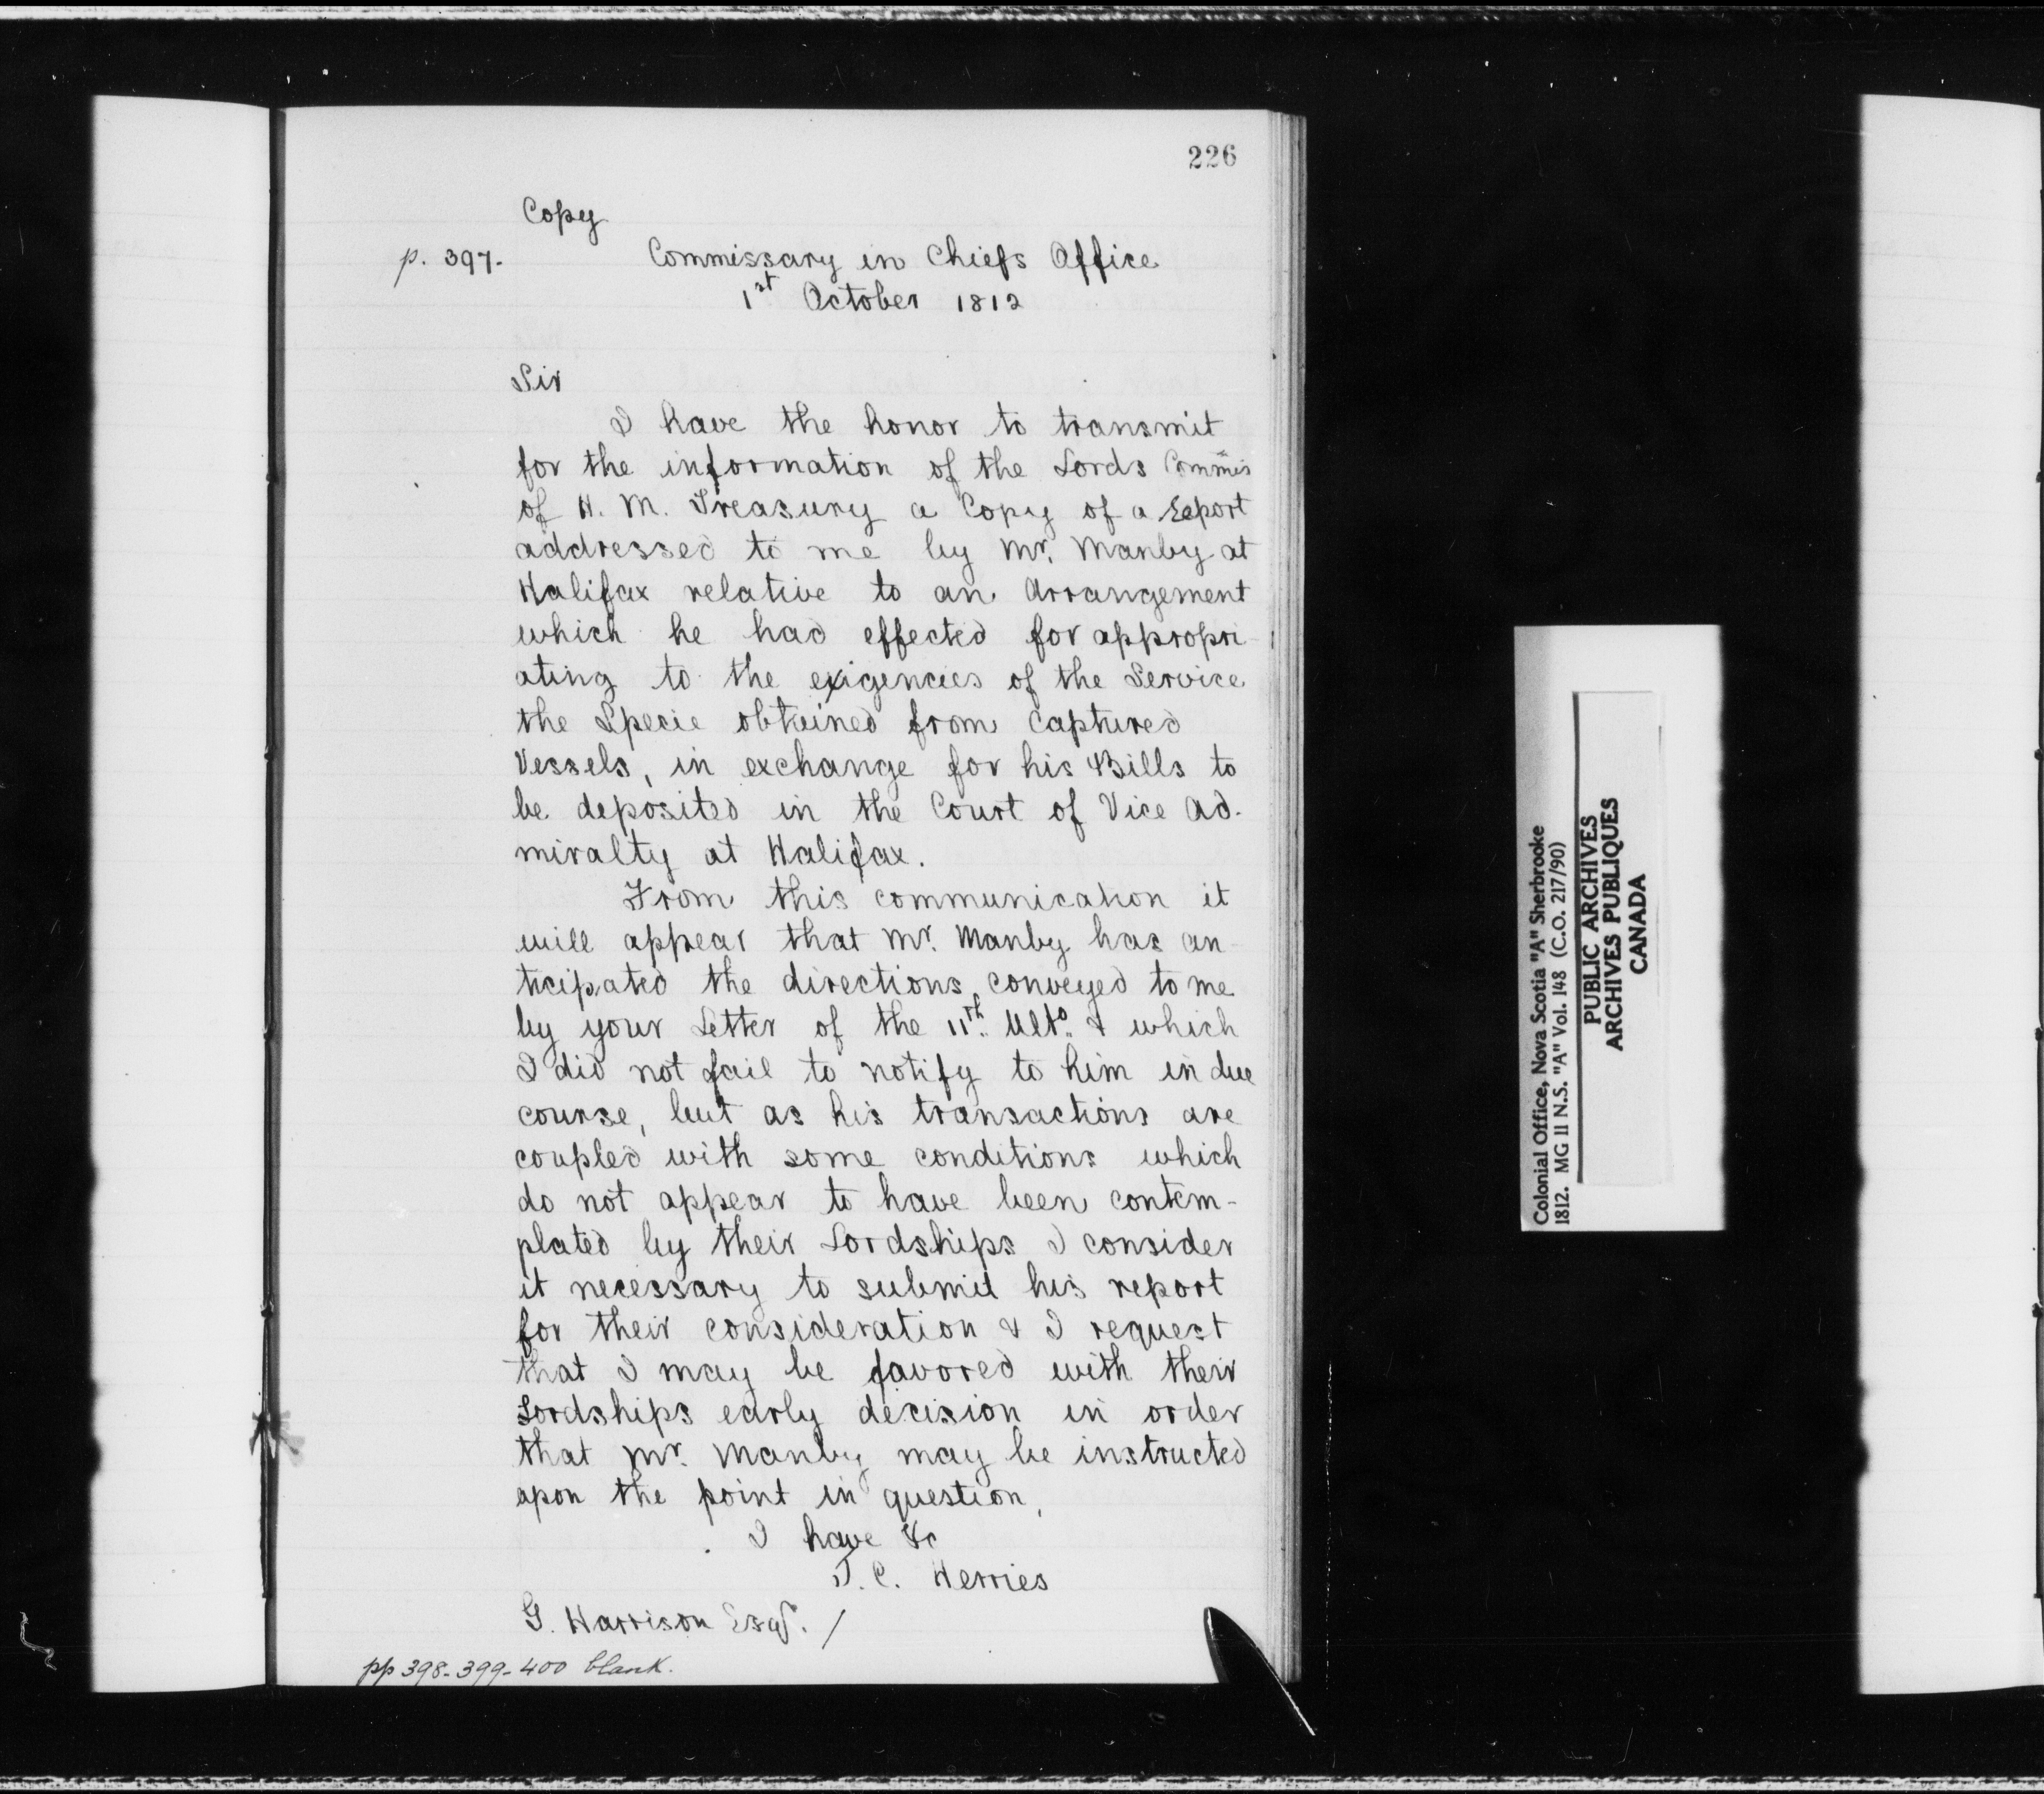 226
Copy
p. 397. Commissary in Chiefs Office
1st October 1812
Sir
I have the honor to transmit
for the information of the Lords Commis
of H. M. Treasury a Copy of a Report
addressed to me by Mr. Manby at
Halifax relative to an Arrangement
which he had effected for appropri-
ating to the exigencies of the Service
the Specie obtained from Captured
Vessels, in exchange for his Bills to
be deposited in the Court of Vice Ad-
miralty at Halifax.
From this communication it
will appear that Mr. Manby has an-
ticipated the directions conveyed to me
by your Letter of the 11th. Ulto. & which
I did not fail to notify to him in due
course, but as his transactions are
coupled with some conditions which
do not appear to have been contem-
plated by their Lordships I consider
it necessary to submit his report
for their consideration & I request
that I may be favored with their
Lordships early decision in order
that Mr. Manby may be instructed
upon the point in question,
I have &c
J. C. Herries
G. Harrison Esqr. /
pp 398-399-400 blank.
Colonial Office, Nova Scotia "A" Sherbrooke
1812. MG 11 N.S. "A" Vol. 148 (C.O. 217/90)
PUBLIC ARCHIVES
ARCHIVES PUBLIQUES
CANADA